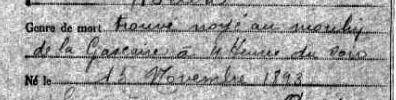 Genre de mort trouvé noyé au moulin
de la Gascarie à 4 heures du soir
Né le 13 Novembre 1893